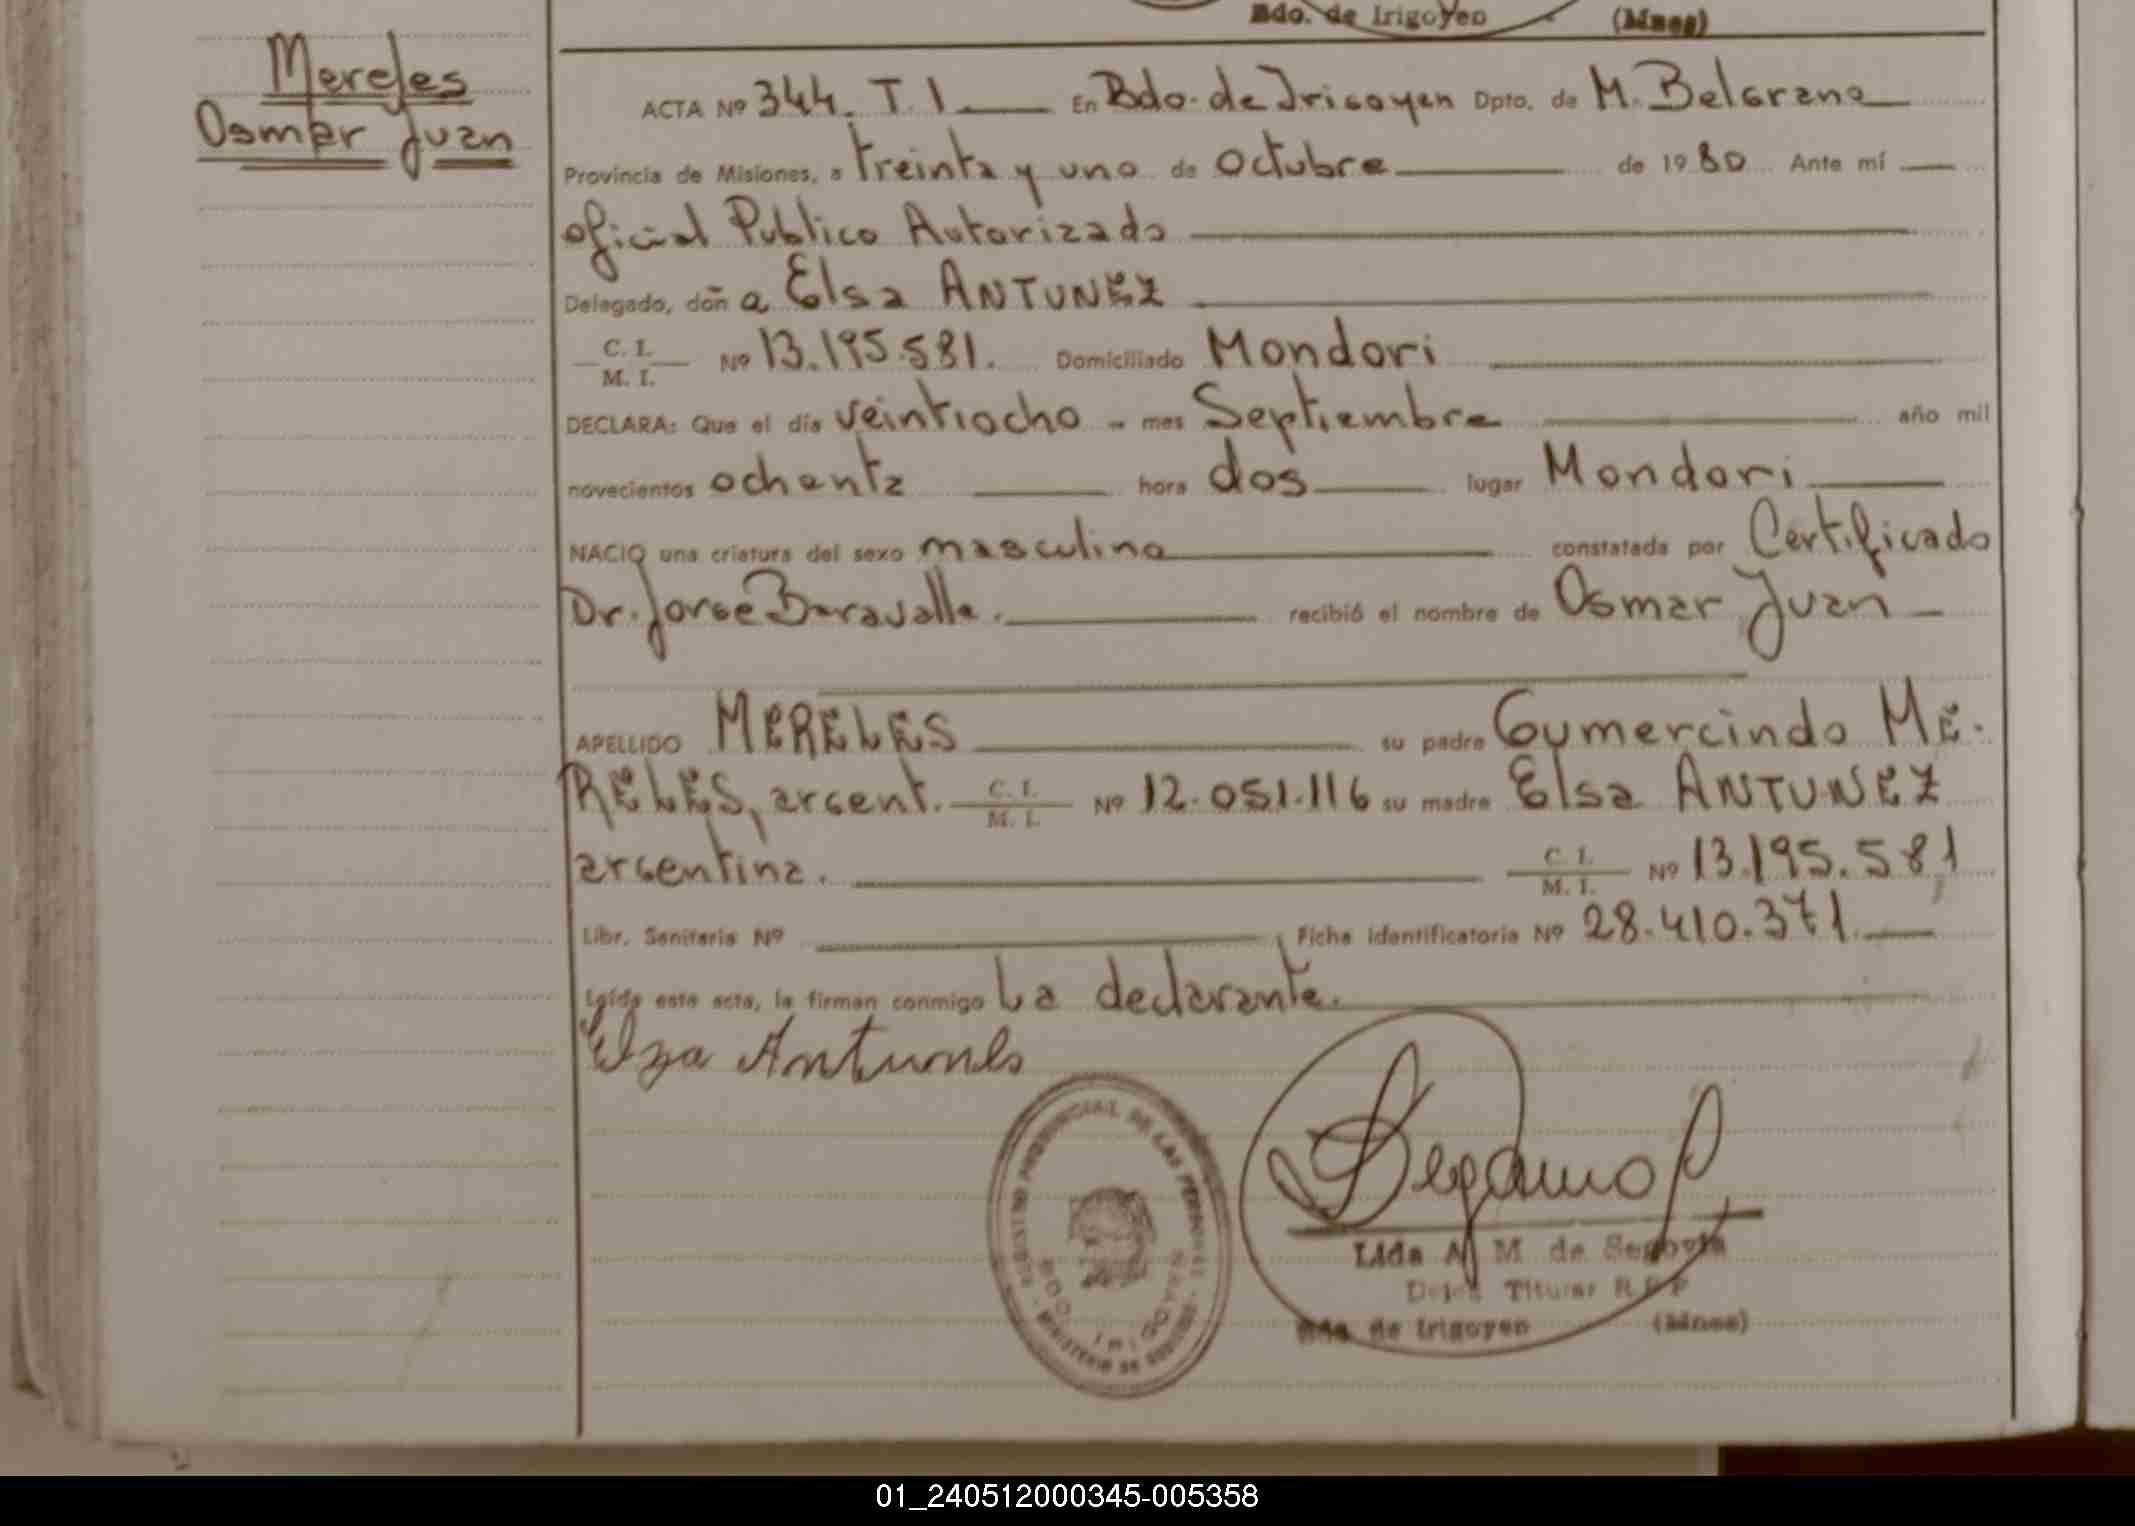 Bdo. de Irigoyen (Mnes)
Mereles
Osmar Juan
ACTA Nº 344. T. I En Bdo. de Irigoyen Dpto. de M. Belgrano
Provincia de Misiones, a treinta y uno de octubre de 1980 Ante mí
oficial Publico Autorizado
Delegado, doña Elsa ANTUNEZ
C. I. M. I. Nº 13.195.581. Domiciliado Mondori
DECLARA: Que el día veintiocho - mes Septiembre año mil
novecientos ochenta hora dos lugar Mondori
NACIO una criatura del sexo masculino constatada por Certificado
Dr. Jorge Baravalle. recibió el nombre de Osmar Juan
APELLIDO MERELES su padre Gumercindo ME-
RELES, argent. C. I. M. I. Nº 12.051.116 su madre Elsa ANTUNEZ
argentina. C. I. M. I. Nº 13.195.581
Libr. Sanitaria Nº Ficha identificatoria Nº 28.410.371.
Leída esta acta, la firman conmigo La declarante.
Elza Antunes
REGISTRO PROVINCIAL DE LAS PERSONAS
MINISTERIO DE GOBIERNO
BDO. IRIGOYEN
Lida A M de Segovia
Deleg Titular R P P
Bdo de Irigoyen (Mnes)
01_240512000345-005358